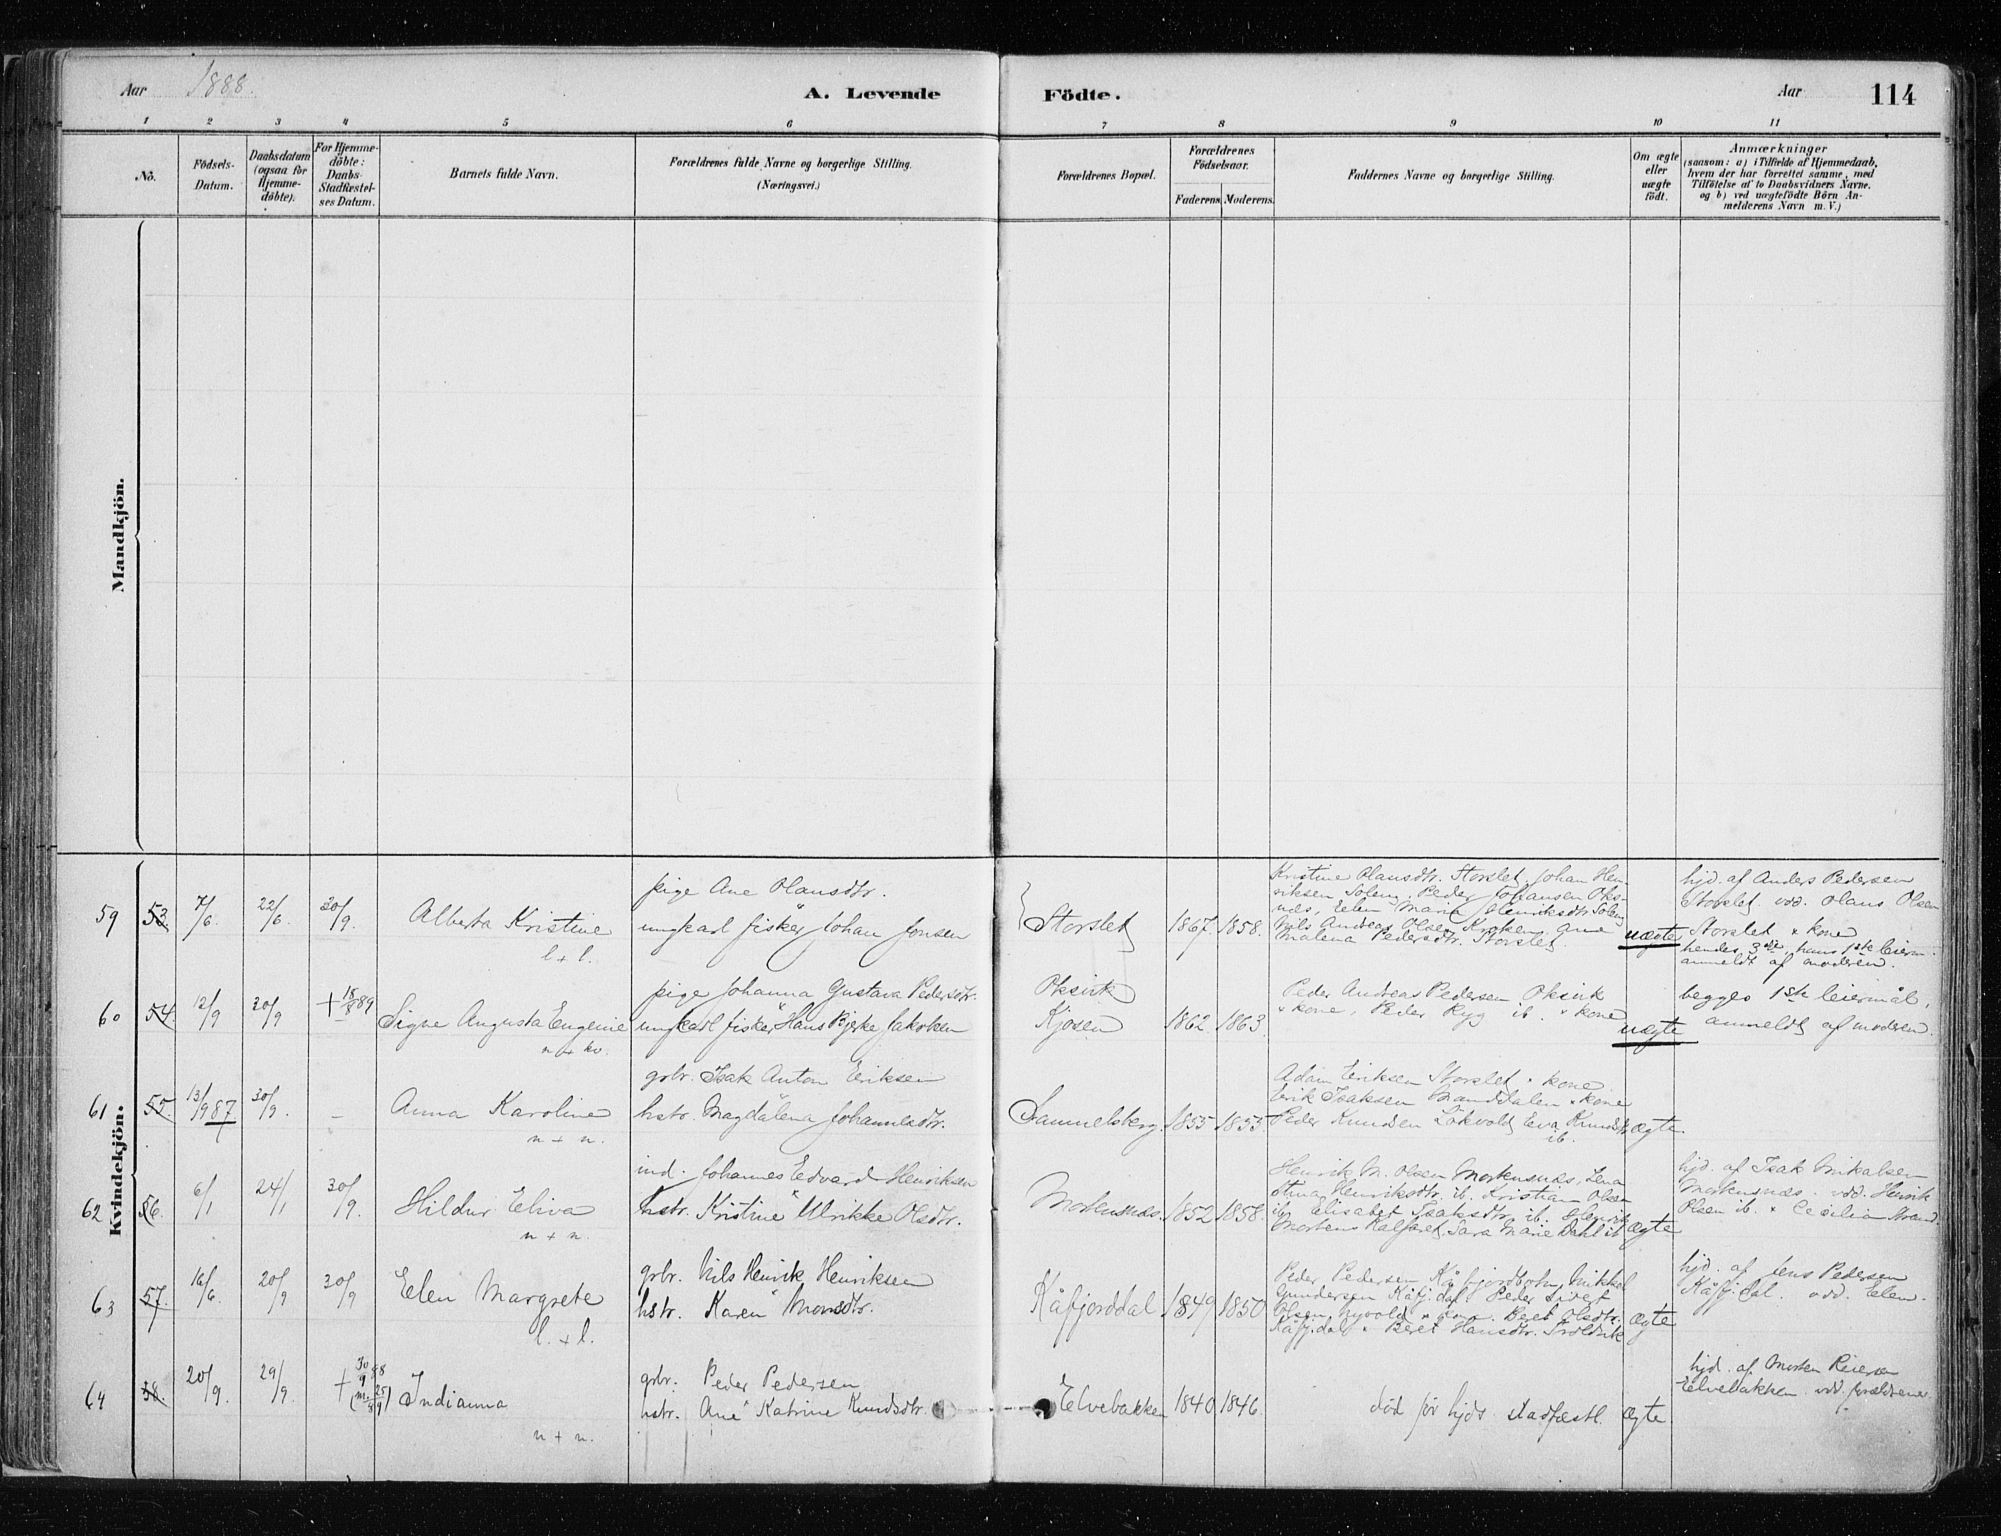 Aar 1888.
A. Levende Födte.
Aar
114
1 2 3 4 5 6 7 8 9 10 11
No.
Födsels-
Datum.
Daabsdatum
(ogsaa for
Hjemme-
døbte).
For Hjemme-
døbte:
Daabs-
Stadfæstel-
ses Datum.
Barnets fulde Navn.
Forældrenes fulde Navne og borgerlige Stilling.
(Næringsvei.)
Forældrenes Bopæl.
Forældrenes
Födselsaar.
Faderens. Moderens.
Faddernes Navne og borgerlige Stilling.
Om ægte
eller
uægte
født.
Anmærkninger
(saasom: a) i Tilfælde af Hjemmedaab,
hvem der har forrettet samme, med
Tilföielse af to Daabsvidners Navne,
og b) ved uægtefödte Börn An-
melderens Navn m. V.)
Mandkjön.
Kvindekjön.
59 53. 7/6. 22/6. 30/9.
Alberta Kristine
l + l.
pige Ane Olausdtr.
ungkarl fisker Johan Jonsen
Storslet 1867. 1858.
Kristine Olausdtr. Storslet, Johan Hen-
riksen Soleng, Peder Johansen Oks-
næs, Elen Maria Henriksdtr. Soleng
Nils Andreas Olsen Kroken, Ane
Malena Pedersdtr. Storslet.
uægte
hjd. af Anders Pedersen
Storslet vdd. Olaus Olsen
Storslet + kone
hendes 3die, hans 1ste leierm.
anmeldt af moderen.
60 54. 12/9 30/9 + 18/8 89
Signe Augusta Eugenie
n + kv.
pige Johanna Gustava Pedersdtr.
ungkarl fisker Hans Bjerke Jakobsen
Oksvik
Kjosen 1862. 1863.
Peder Andreas Pedersen Oksvik
+ kone, Peder Ryg ib. + kone
uægte
begges 1ste leiermål,
anmeldt af moderen.
61 55. 13/9 87. 30/9. –
Anna Karoline
n + n.
grbr. Isak Anton Eriksen
hstr. Magdalena Johannesdtr.
Samuelsberg. 1855 1853.
Adam Eriksen Storslet + kone.
Erik Isaksen Manddalen + kone
Peder Knudsen Løkvold, Eva Knudsdtr.
ib.
ægte.
62 56. 6/1 24/1 30/9.
Hildur Eliva
n + n.
ind. Johannes Edvard Henriksen
hstr. Kristine Ulrikke Olsdtr.
Mortensnæs. 1852 1858.
Henrik M. Olsen Mortensnæs, Lena
Stina Henriksdtr. ib. Kristian Olsen
ib. Elisabet Isaksdtr. ib. Henrik
Mortens Kalfaret, Sara Marie Dahl ib
ægte
hjd. af Isak Mikalsen
Mortensnæs. vdd. Henrik
Olsen ib. + Cecilia Strand.
63 57. 16/6. 20/9 30/9
Elen Margrete
l. + l.
grbr. Nils Henrik Henriksen
hstr. Karen Monsdtr.
Kåfjorddal 1849 1850
Peder Pedersen Kåfjordbotn, Mikkel
Gundersen Kåfj.dal. Peder Sivert
Olsen Nyvold + kone. Beret Olsdtr.
Kåfj.dal + Beret Hansdtr. Troldvik
ægte
hjd. af Jens Pedersen
Kåfj.dal. vdd. Elen.
64 58. 20/9. 29/9. + 30/9 88
(m. 25/8 9)
Indianna
n + n.
grbr. Peder Pedersen
hstr. Ane Katrine Knudsdtr.
Elvebakken 1840 1846.
død før hjds stadfæstl.
ægte
hjd. af Morten Reiersen
Elvebakken. vdd. forældrene.